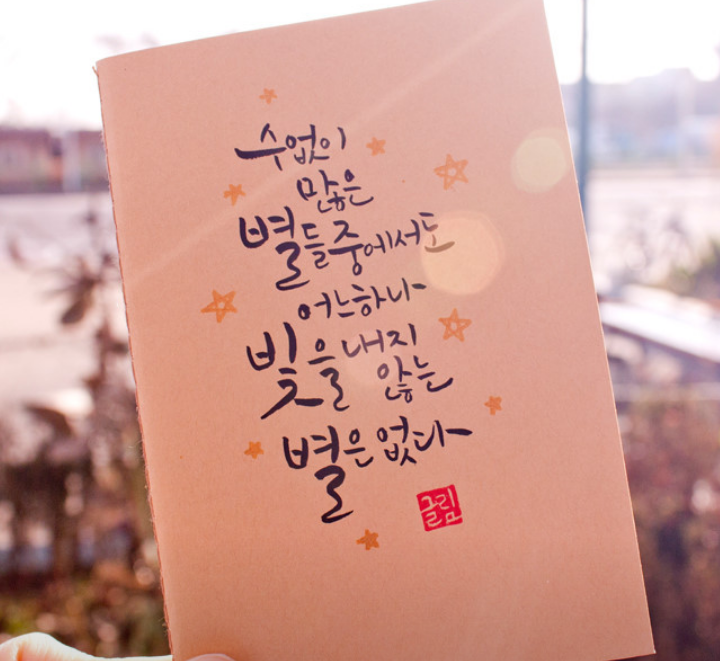 수없이
많은
별들중에서도
어느하나
빛을내지
않는
별은없다
글림